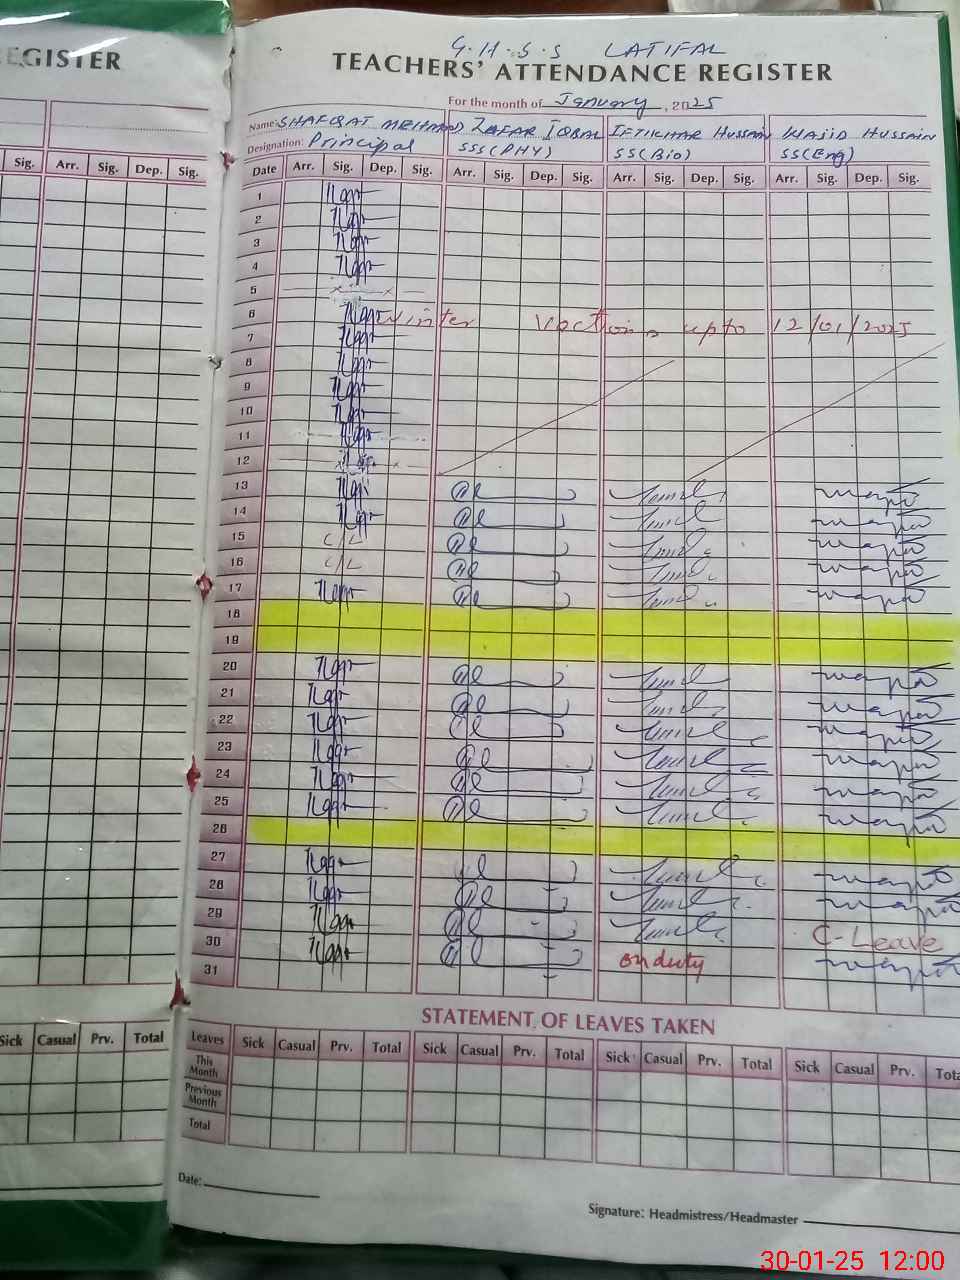 G.H.S.S LATIFAL
REGISTER
TEACHERS' ATTENDANCE REGISTER
For the month of January, 2025
Name: SHAFQAT MEHMOOD ZAFAR IQBAL IFTIKHAR HUSSAIN WAJID HUSSAIN
Designation: Principal SSS(PHY) SS(Bio) SS(Eng)
Sig. Arr. Sig. Dep. Sig. Date Arr. Sig. Dep. Sig. Arr. Sig. Dep. Sig. Arr. Sig. Dep. Sig. Arr. Sig. Dep. Sig.
1
2
3
4
5
6 Winter Vactions upto 12/01/2025
7
8
9
10
11
12
13
14
15 C/L
16 C/L
17
18
19
20
21
22
23
24
25
26
27
28
29 C-Leave
30 on duty
31
STATEMENT OF LEAVES TAKEN
Sick Casual Prv. Total Leaves Sick Casual Prv. Total Sick Casual Prv. Total Sick Casual Prv. Total Sick Casual Prv. Tota
This Month
Previous Month
Total
Date:
Signature: Headmistress/Headmaster
30-01-25 12:00